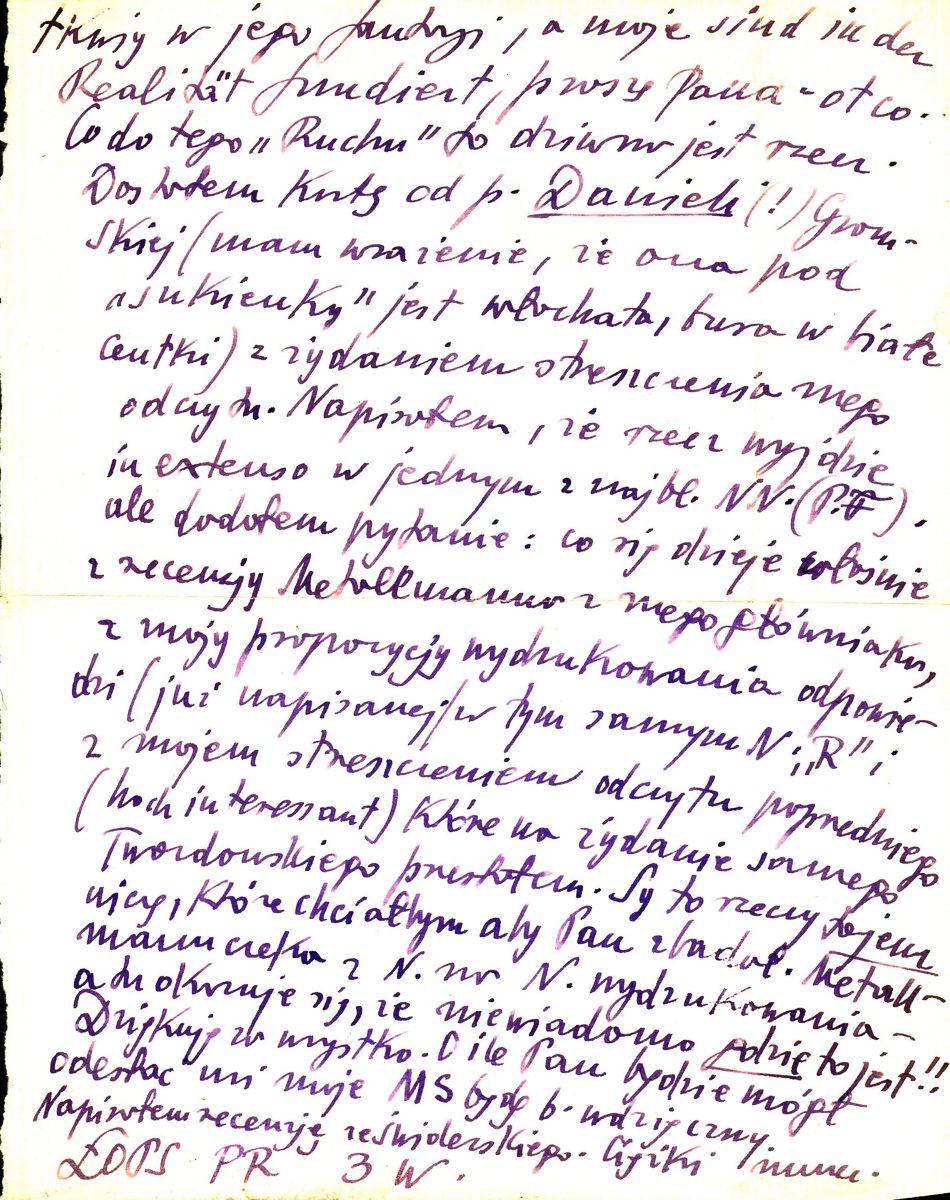 tkwią w jego fantazji, a moje sind in der
Realität fundiert, proszę Pana - ot co.
Co do tego „Ruchu” to dziwna jest rzecz.
Dostałem kartę od p. Danieli (!) Grom-
skiej (mam wrażenie, że ona pod
„sukienką” jest włochata, bura w białe
centki) z żądaniem streszczenia mego
odczytu. Napisałem, że rzecz wyjdzie
in extenso w jednym z najbl. NN. (P.F).
ale dodałem pytanie: co się dzieje właśnie
z recenzją Metallmanna z mego główniaka,
z moją propozycją wydrukowania odpowie-
dzi (już napisanej) w tym samym N „R” i
z mojem streszczeniem odczytu poprzedniego
(hoch interessant) które na żądanie samego
Twardowskiego przesłałem. Są to rzeczy tajem
nicze, które chciałbym aby Pan zbadał. Metall-
manna czeka z N. na N. wydrukowania -
a tu okazuje się, że niewiadomo gdzie to jest!!
Dziękuję za wszystko. O ile Pan będzie mógł
odesłać mi moje MS będę b. wdzięczny
Napisałem recenzję ze Świderskiego. Ciężki
ŁOPS PR 3 W.